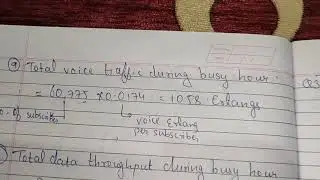 Total voice traffic during busy hour
= 60,775 × 0.0174 = 1058 Erlangs
of subscriber
voice Erlang
per subscriber
Total data throughput during busy hour